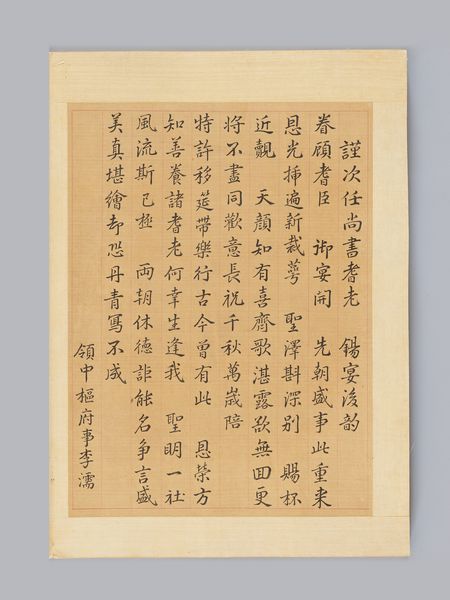 謹次任尚書耆老 錫宴後韵
眷顧耆臣 御宴開 先朝盛事此重来
恩光揷遍新裁萼 聖澤斟深别 賜杯
近覿 天顔知有喜齊歌湛露欲無回更
将不盡同歡意長祝千秋萬歲陪
特許移筵帶樂行古今曾有此 恩榮方
知善養諸耆老何幸生逢我 聖明一社
風流斯已極 兩朝休德詎能名争言盛
美真堪繪却恐丹青寫不成
領中樞府事李濡